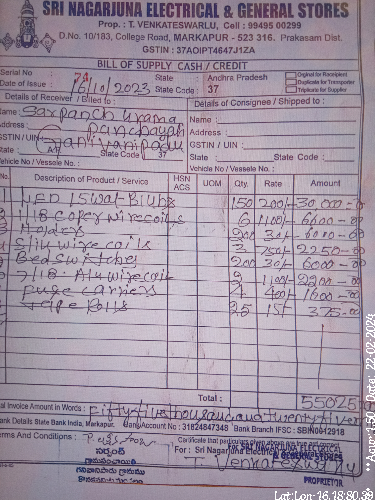 SRI NAGARJUNA ELECTRICAL & GENERAL STORES
Prop. : T. VENKATESWARLU, Cell : 99495 00299
D.No. 10/183, College Road, MARKAPUR - 523 316. Prakasam Dist.
GSTIN : 37AOIPT4647J1ZA
BILL OF SUPPLY CASH / CREDIT
Serial No 721 State : Andhra Pradesh Original for Receipient
Date of Issue : 16/10/2023 State Code : 37 Duplicate for Transporter
Triplicate for Supplier
Details of Receiver / Billed to : Details of Consignee / Shipped to :
Name: Sarpanch grama Name :
Address : panchayati Address :
GSTIN / UIN GSTIN / UIN :
State : A.P State Code 37 State : State Code :
Vehicle No / Vessele No. : Vehicle No / Vessele No. :
No. Description of Product / Service HSN ACS UOM Qty. Rate Amount
1 LED 15 wat Blubs 150 200/- 30,000-00
1/18 Coper wire coils 6 1100/- 6600-00
Holders 200 30/- 6000-00
Silu wire coils 3 750/- 2250-00
Bed switches 200 30/- 6000-00
7/18 Alu wire coil 2 1100/- 2200-00
fuse carriers 4 400/- 1600-00
Tape Rolls 25 15/- 375-00
Total : 55025
Total Invoice Amount in Words : fifty five thousand and twenty five
Bank Details State Bank India, Markapur. Bank Account No : 31824847348 Bank Branch IFSC : SBIN0012918
Terms And Conditions :
సర్పంచ్
For : Sri Nagarjuna Electrical
T. Venkateswarlu
PROPRIETOR
Date: 22-02-2024
Lat:Lon-16.18:80.8